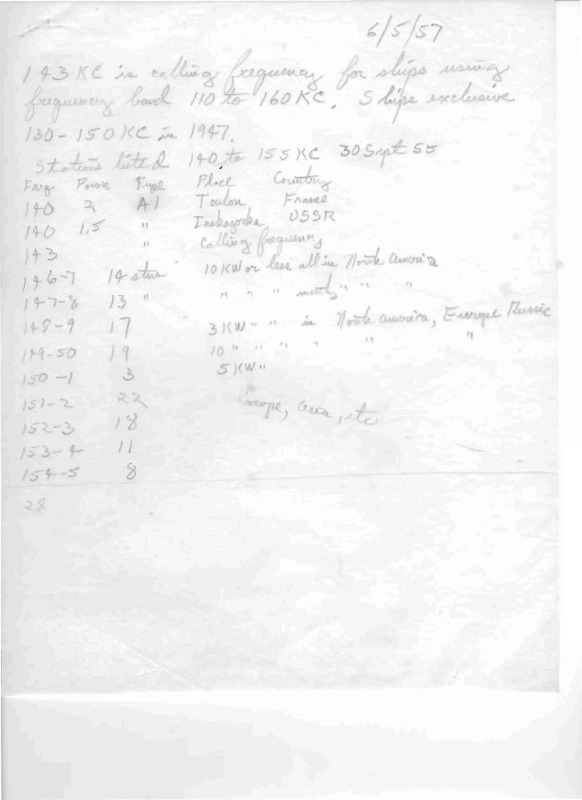 6/5/57
143 KC is calling frequency for ships using
frequency band 110 to 160 KC. Ships exclusive
130-150 KC in 1947.
Stations listed 140 to 155 KC 30 Sept 55
Freq Power Type Place Country
140 2 A1 Toulon France
140 1.5 " USSR
143 " Calling frequency
146-7 14 stns 10 KW or less all in North America
147-8 13 " " " " mostly " " "
148-9 17 3 KW " " in North America, Europe Russia
149-50 19 10 " " " " " "
150-1 3 5 KW "
151-2 22 Europe, Asia, etc
152-3 18
153-4 11
154-5 8
28